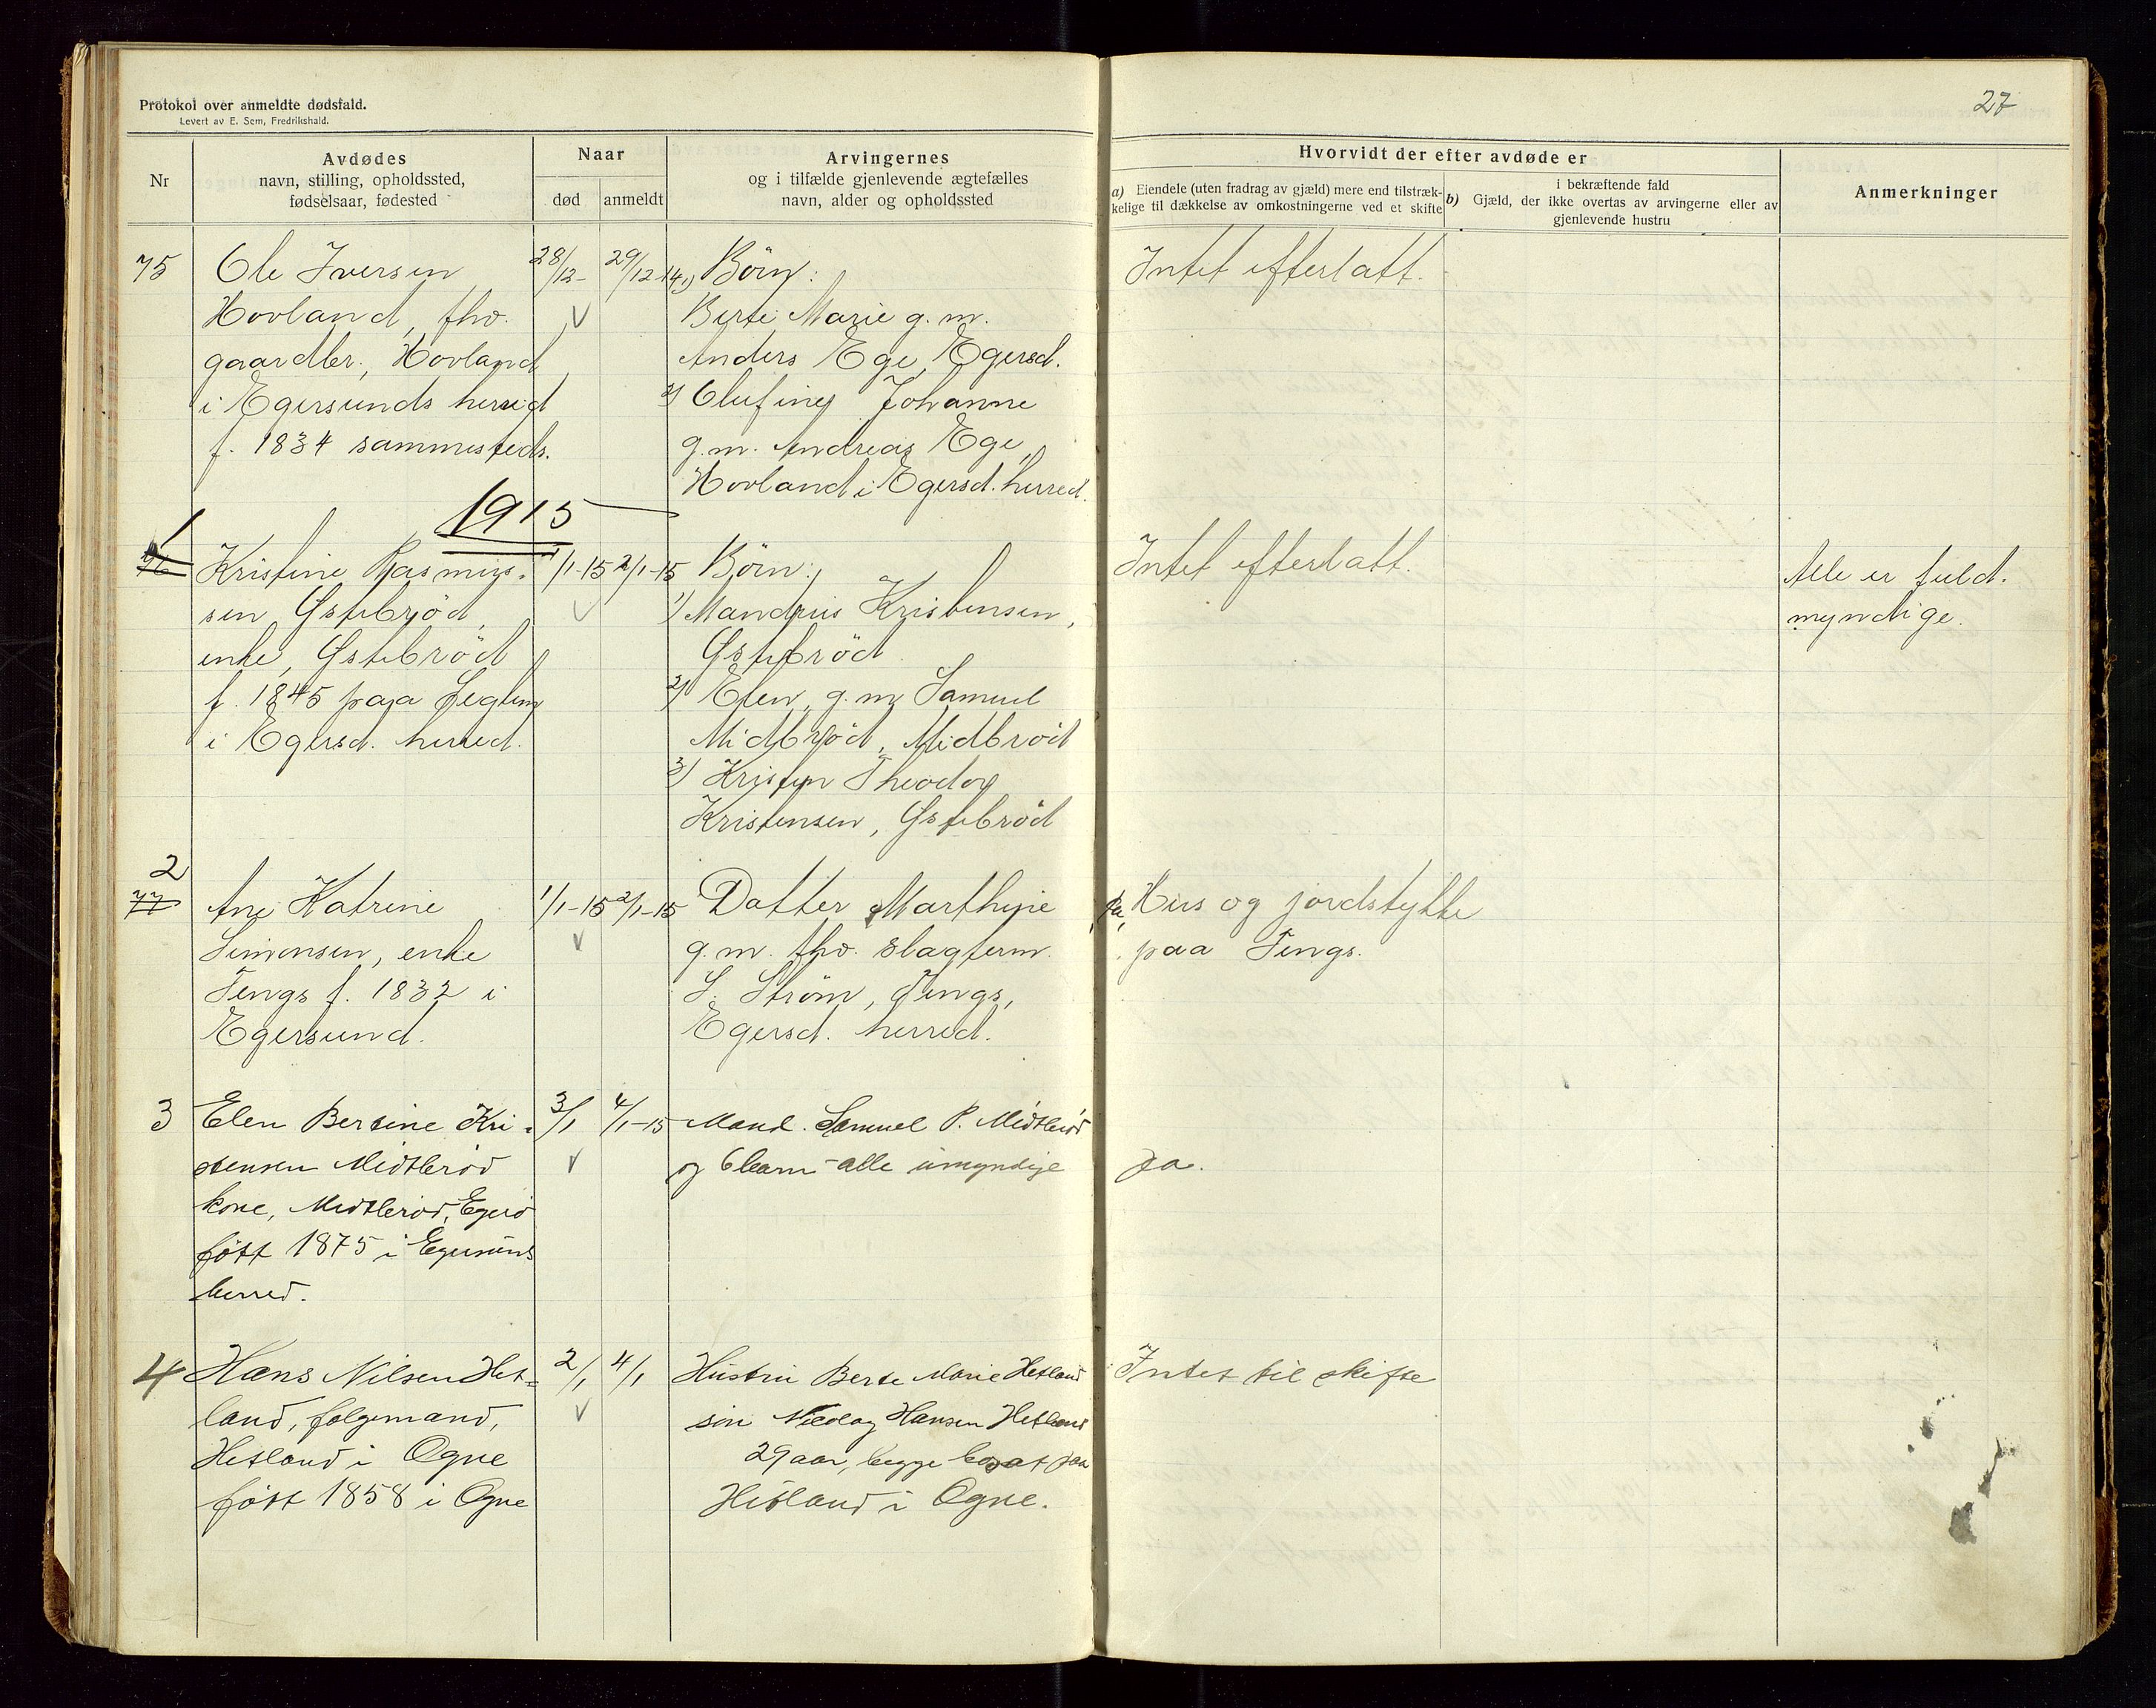 Protokol over anmeldte dødsfald.
Levert av E. Sem, Fredrikshald.
27
Nr
Avdødes
navn, stilling, opholdssted,
fødselsaar, fødested
Naar
død
anmeldt
Arvingernes
og i tilfælde gjenlevende ægtefælles
navn, alder og opholdssted
Hvorvidt der efter avdøde er
a) Eiendele (uten fradrag av gjæld) mere end tilstræk-
kelige til dækkelse av omkostningerne ved et skifte
i bekræftende fald
b) Gjæld, der ikke overtas av arvingerne eller av
gjenlevende hustru
Anmerkninger
75
Ole Iversen
Hovland, fhv.
gaardbr., Hovland
i Egersunds herred
f. 1834 sammesteds.
28/12-
29/12-14
1) Börn:
Berte Marie g. m.
Anders Ege, Egersd.
2) Olufine Johanne
g. m. Andreas Ege,
Hovland i Egersd. herred.
Intet efterlatt.
1915
1
76
Kristine Rasmus-
sen Østebröd,
enke, Østebröd
f. 1845 paa
i Egersd. herred.
1/1-15
2/1-15
Börn:
1) Mandrius Kristensen,
Østebröd
2) Elen, g. m. Samuel
Midbröd, Midbröd
3) Kristen Theodor
Kristensen, Østebröd
Intet efterlatt.
Alle er fuld-
myndige.
2
77
Ane Katrine
Simonsen, enke
Tengs f. 1832 i
Egersund.
1/1-15
2/1-15
Datter Marthine
g. m. fhv. slagterm.
S. Ström, Tengs,
Egersd. herred.
Ja, Hus og jordstykke
paa Tengs.
3
Elen Bertine Kri-
stensen Midtbröd
kone, Midtbröd, Egerö
født 1875 i Egersunds
herred.
3/1
4/1-15
Mand. Samuel P. Midtbröd
og 6 barn - alle umyndige
Ja.
4
Hans Nilsen Het-
land, følgemand,
Hetland i Ogne
født 1858 i Ogne
2/1
4/1
Hustru Berte Marie Hetland
søn Nicolay Hansen Hetland
29 aar, begge bosat paa
Hetland i Ogne.
Intet til skifte